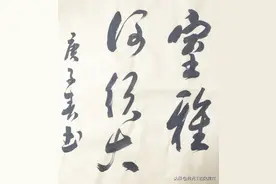 室雅
何须大
庚子春书